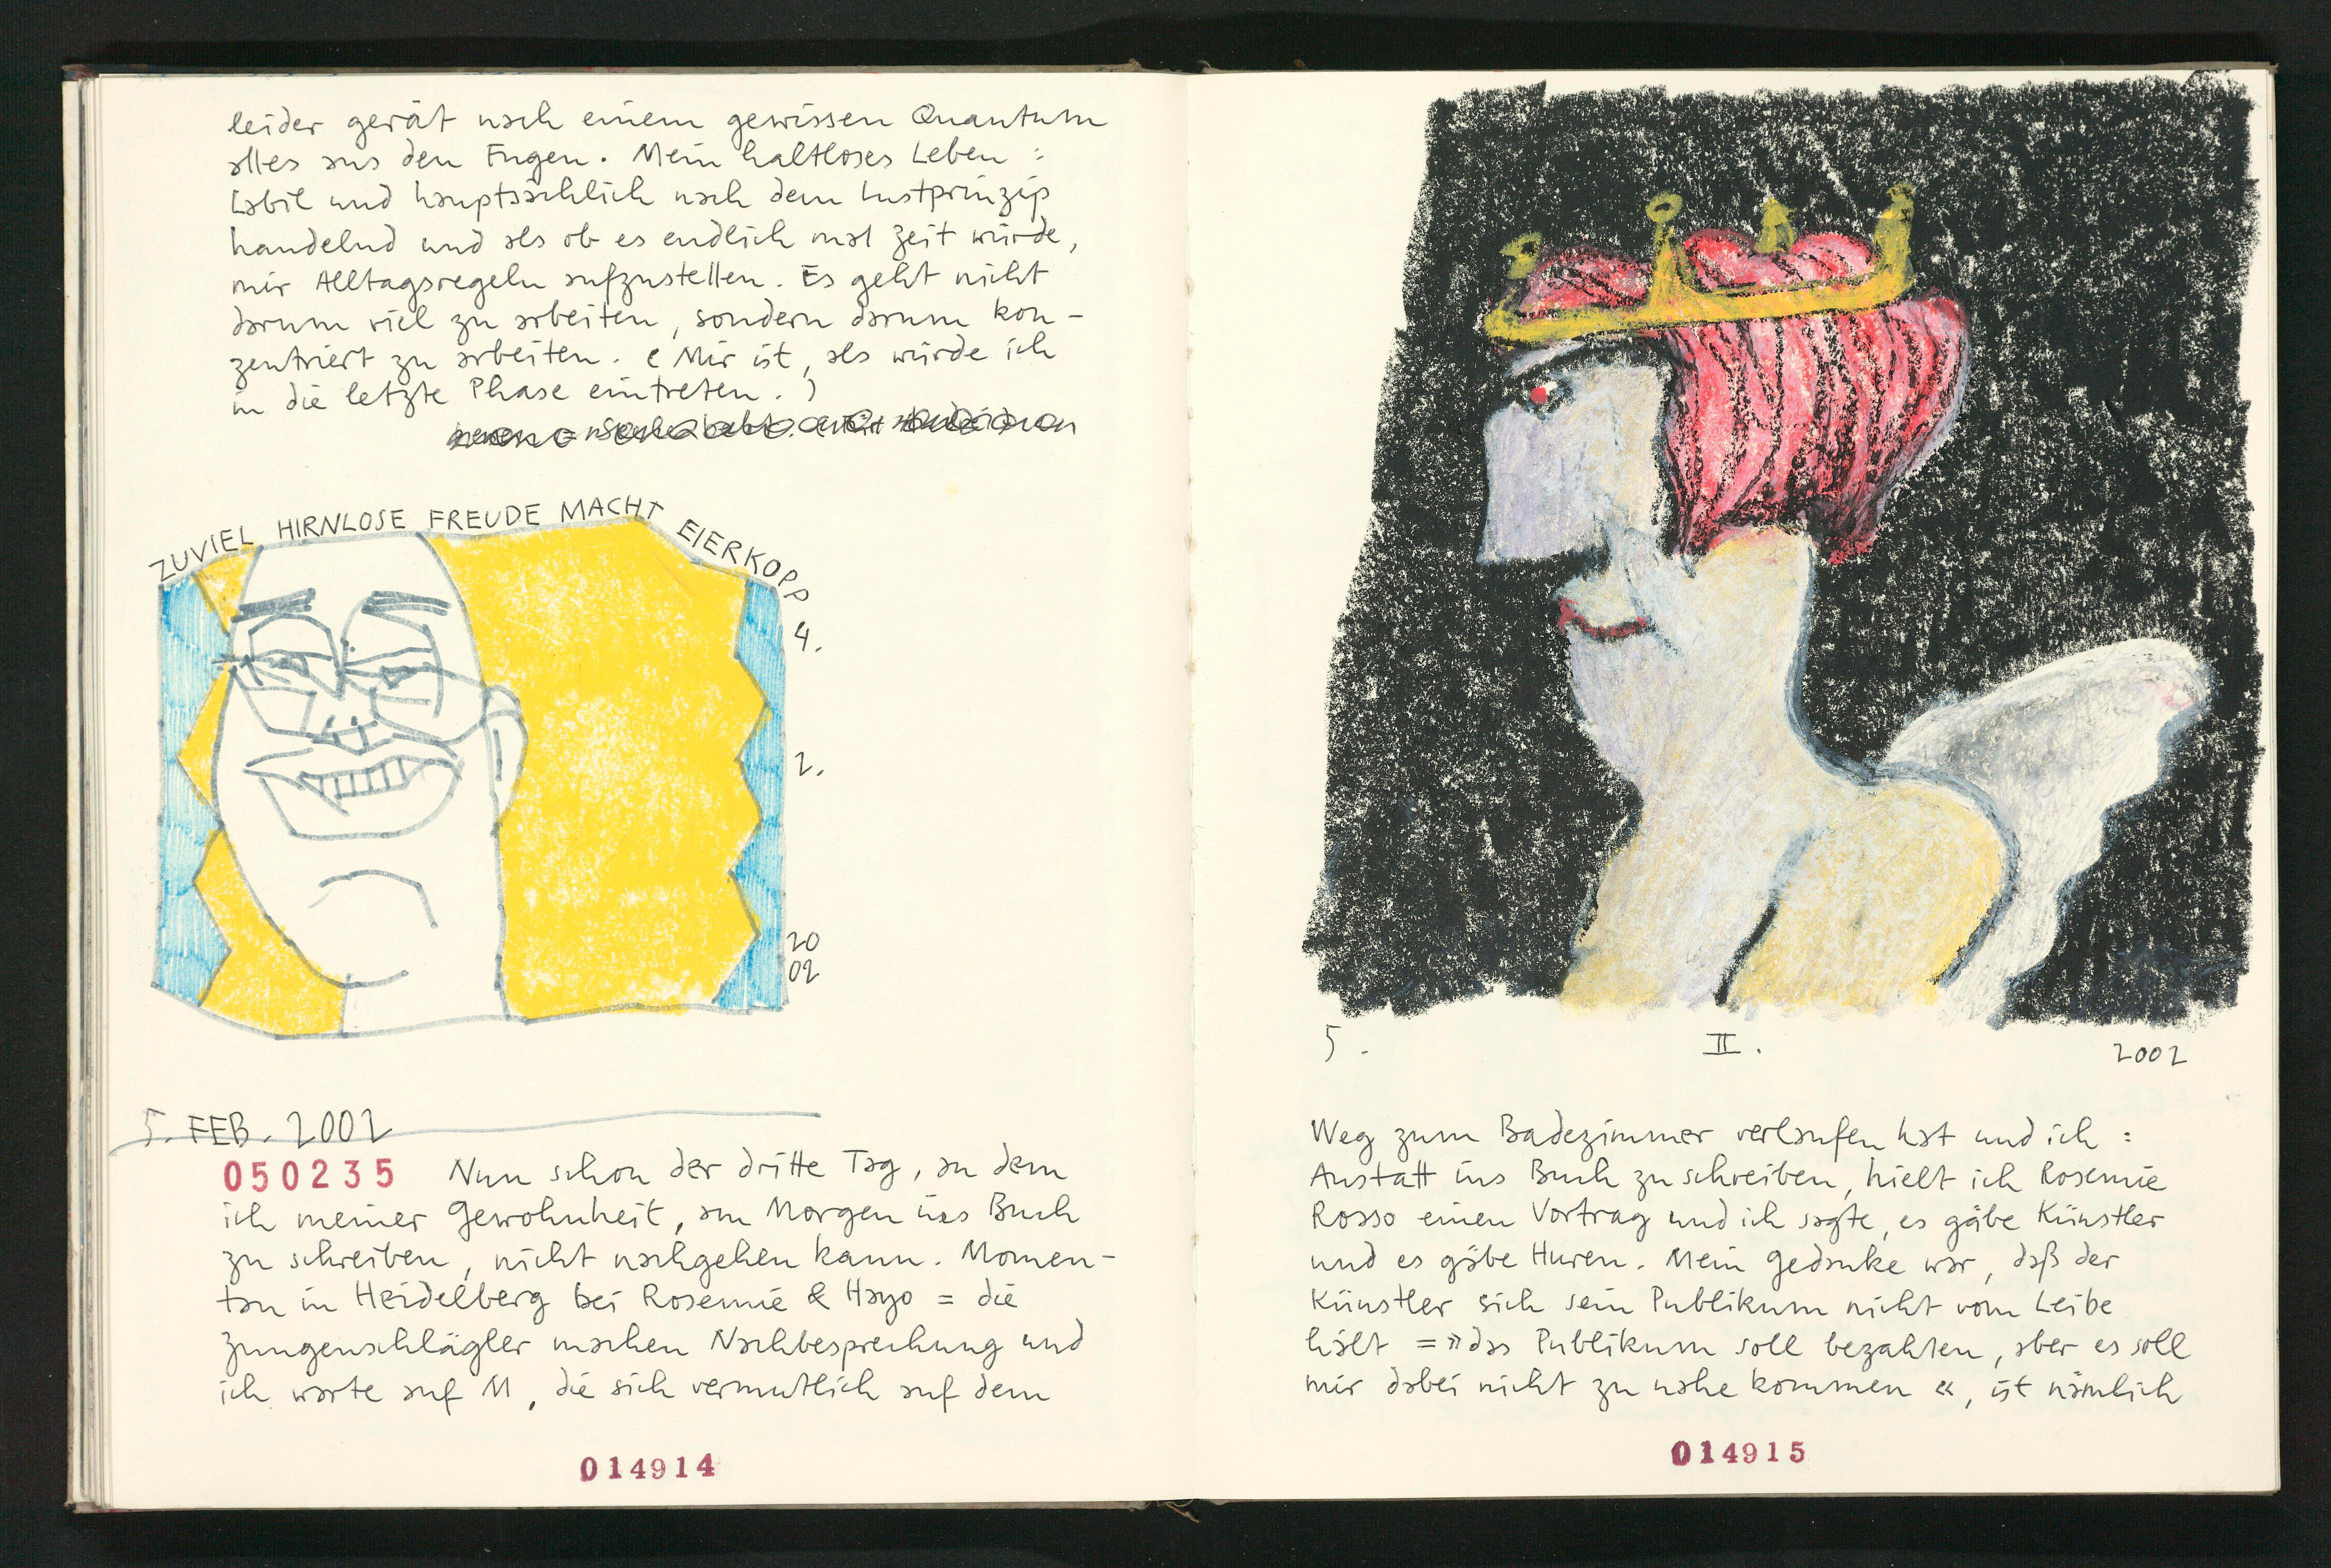 leider gerät nach einem gewissen Quantum
alles aus den Fugen. Mein haltloses Leben :
Labil und hauptsächlich nach dem Lustprinzip
handelnd und als ob es endlich mal Zeit würde,
mir Alltagsregeln aufzustellen. Es geht nicht
darum viel zu arbeiten, sondern darum kon-
zentriert zu arbeiten. (Mir ist, als würde ich
in die letzte Phase eintreten.)
ZUVIEL HIRNLOSE FREUDE MACHT EIERKOPP
4.
2.
20
02
5. FEB. 2002
050235 Nun schon der dritte Tag, an dem
ich meiner Gewohnheit, am Morgen ins Buch
zu schreiben, nicht nachgehen kann. Momen-
tan in Heidelberg bei Rosemie & Hayo = die
Zungenschlägler machen Nachbesprechung und
ich warte auf M, die sich vermutlich auf dem
014914
5. II. 2002
Weg zum Badezimmer verlaufen hat und ich :
Anstatt ins Buch zu schreiben, hielt ich Rosemie
Rosso einen Vortrag und ich sagte, es gäbe Künstler
und es gäbe Huren. Mein Gedanke war, daß der
Künstler sich sein Publikum nicht vom Leibe
hält = »das Publikum soll bezahlen, aber es soll
mir dabei nicht zu nahe kommen «, ist nämlich
014915